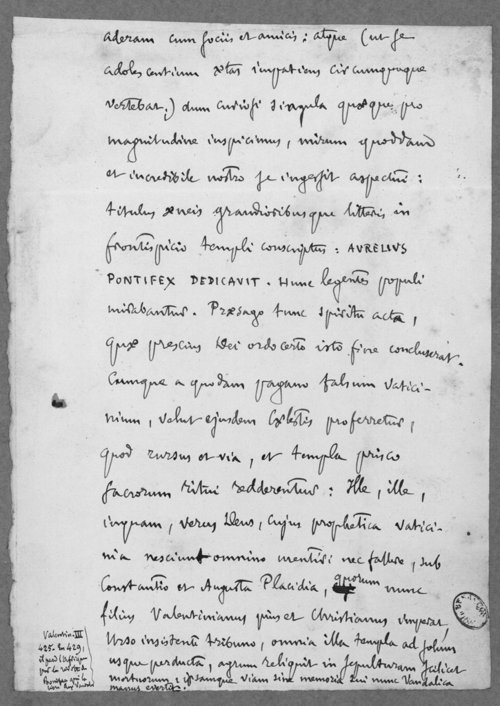 aderam cum sociis et amicis : atque (ut se
adolescentium ætas impatiens circumquaque
vertebat,) dum curiosi singula quæque pro
magnitudine inspicimus, mirum quoddam
et incredibile nostro se ingessit aspectui :
titulus æneis grandioribusque litteris in
frontispicio templi conscriptus : AVRELIVS
PONTIFEX DEDICAVIT . Hunc legentes populi
mirabantur. Præsago tunc spiritu acta,
quæ præscius Dei ordo certo isto fine concluserat.
Cumque a quodam pagano falsum vatici-
nium, velut ejusdem Cælestis proferretur,
quod rursus et via, et templa prisco
sacrorum ritui redderentur : Ille, ille,
inquam, verus Deus, cujus prophetica vatici-
nia nesciunt omnino mentiri nec fallere, sub
Constantio et Augusta Placidia, quorum nunc
filius Valentinianus pius et Christianus imperat
Urso insistenti tribuno, omnia illa templa ad solum
usque perducta, agrum reliquit in sepulturam scilicet
mortuorum ; ipsamque viam sine memoria sui nunc Vandalica
manus evertit.
Valentin. III
425 429,